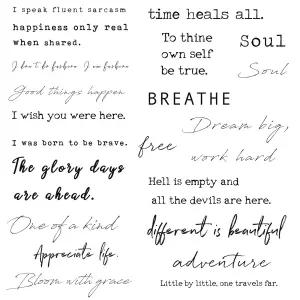 I speak fluent sarcasm
happiness only real
when shared.
I don't do fashion. I am fashion.
Good things happen
I wish you were here.
I was born to be brave.
The glory days
are ahead.
One of a kind
Appreciate life.
Bloom with grace
time heals all.
To thine
own self
be true.
Soul
Soul
BREATHE
Dream big,
work hard
free
Hell is empty and
all the devils are here.
different is beautiful
adventure
Little by little, one travels far.